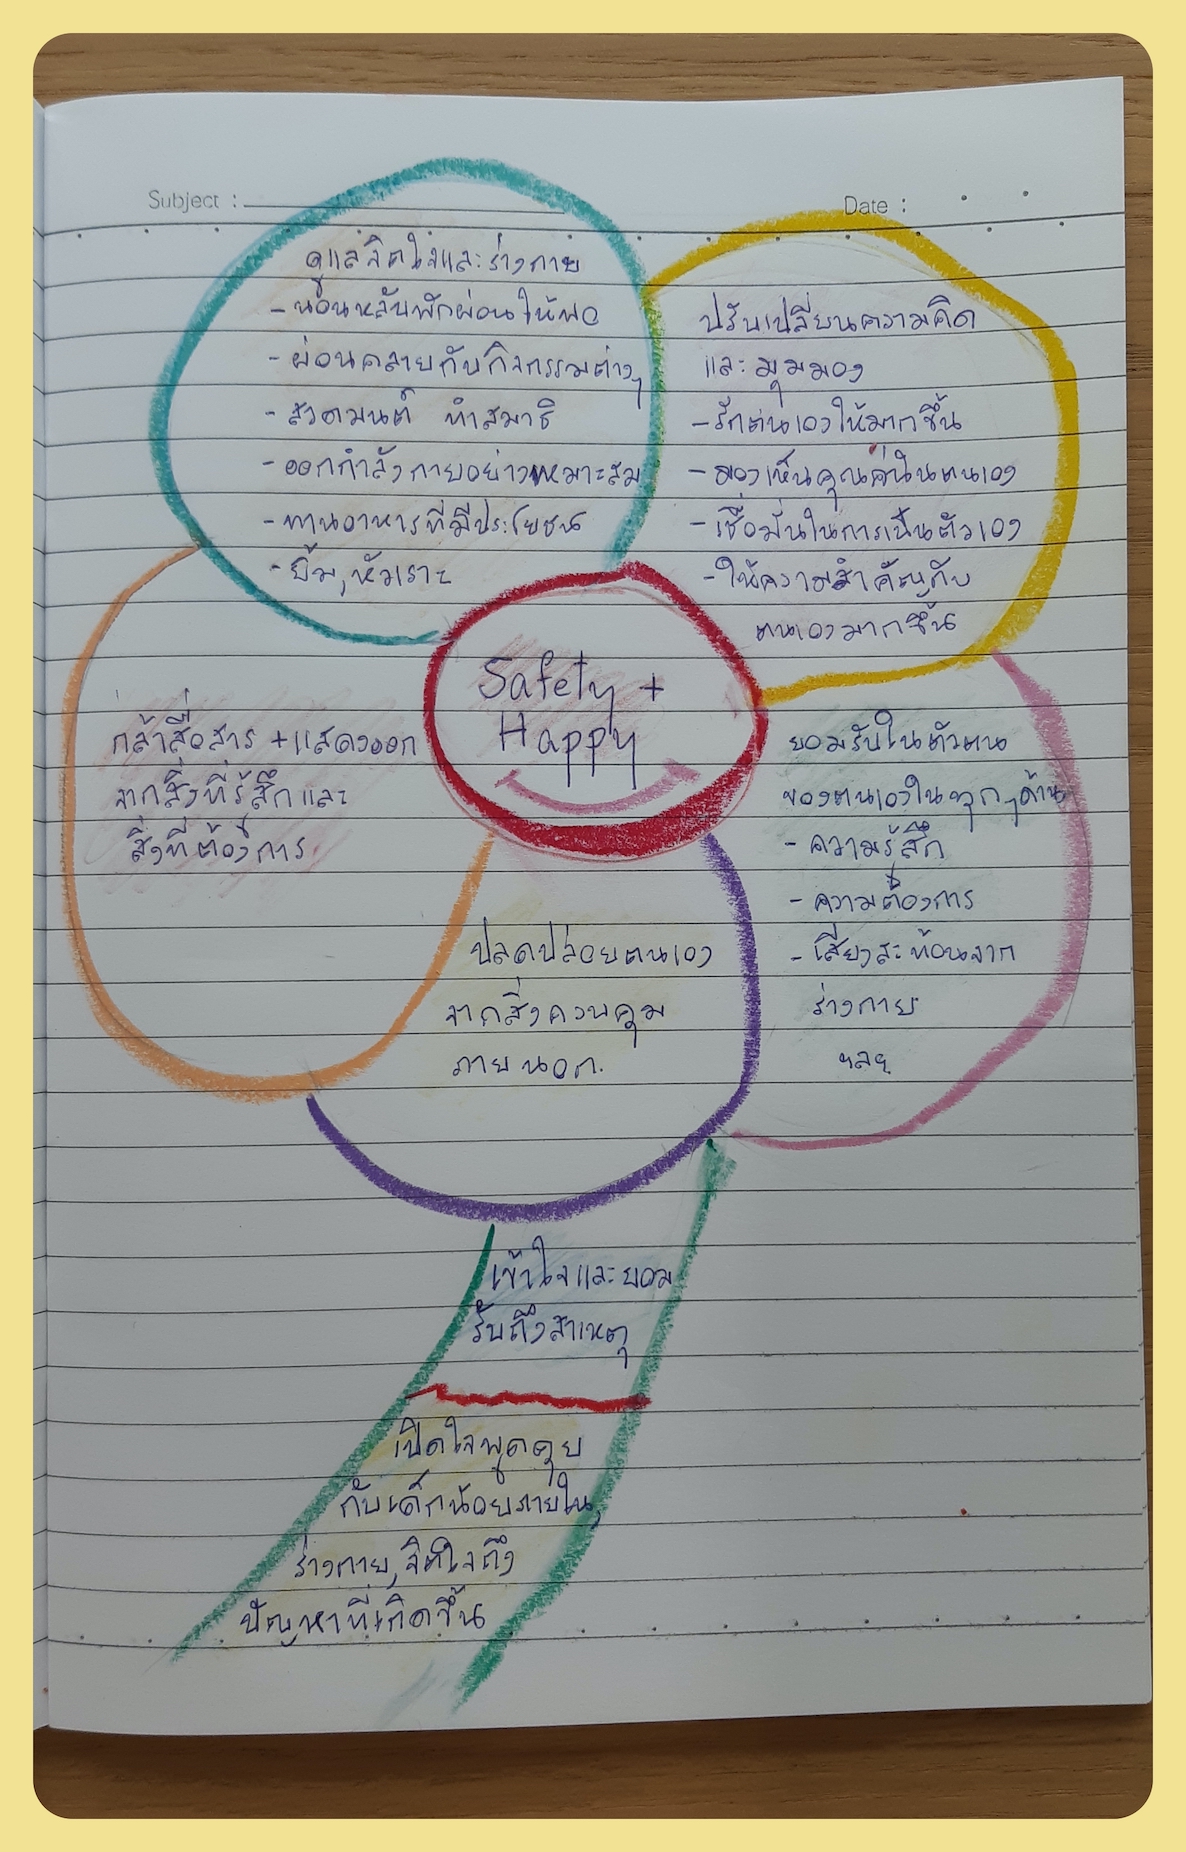 Subject :
Date :
ดูแลจิตใจและร่างกาย
- นอนหลับพักผ่อนให้พอ
- ผ่อนคลายกับกิจกรรมต่างๆ
- สวดมนต์ ทำสมาธิ
- ออกกำลังกายอย่างเหมาะสม
- ทานอาหารที่มีประโยชน์
- ยิ้ม, หัวเราะ
ปรับเปลี่ยนความคิด
และมุมมอง
- รักตนเองให้มากขึ้น
- มองเห็นคุณค่าในตนเอง
- เชื่อมั่นในการเป็นตัวเอง
- ให้ความสำคัญกับ
ตนเองมากขึ้น
Safety +
Happy
กล้าสื่อสาร + แสดงออก
จากสิ่งที่รู้สึกและ
สิ่งที่ต้องการ
ยอมรับในตัวตน
ของตนเองในทุกๆด้าน
- ความรู้สึก
- ความต้องการ
- เสียงสะท้อนจาก
ร่างกาย
ฯลฯ
ปลดปล่อยตนเอง
จากสิ่งควบคุม
ภายนอก.
เข้าใจและยอม
รับถึงสาเหตุ
เปิดใจพูดคุย
กับเด็กน้อยภายใน,
ร่างกาย, จิตใจถึง
ปัญหาที่เกิดขึ้น